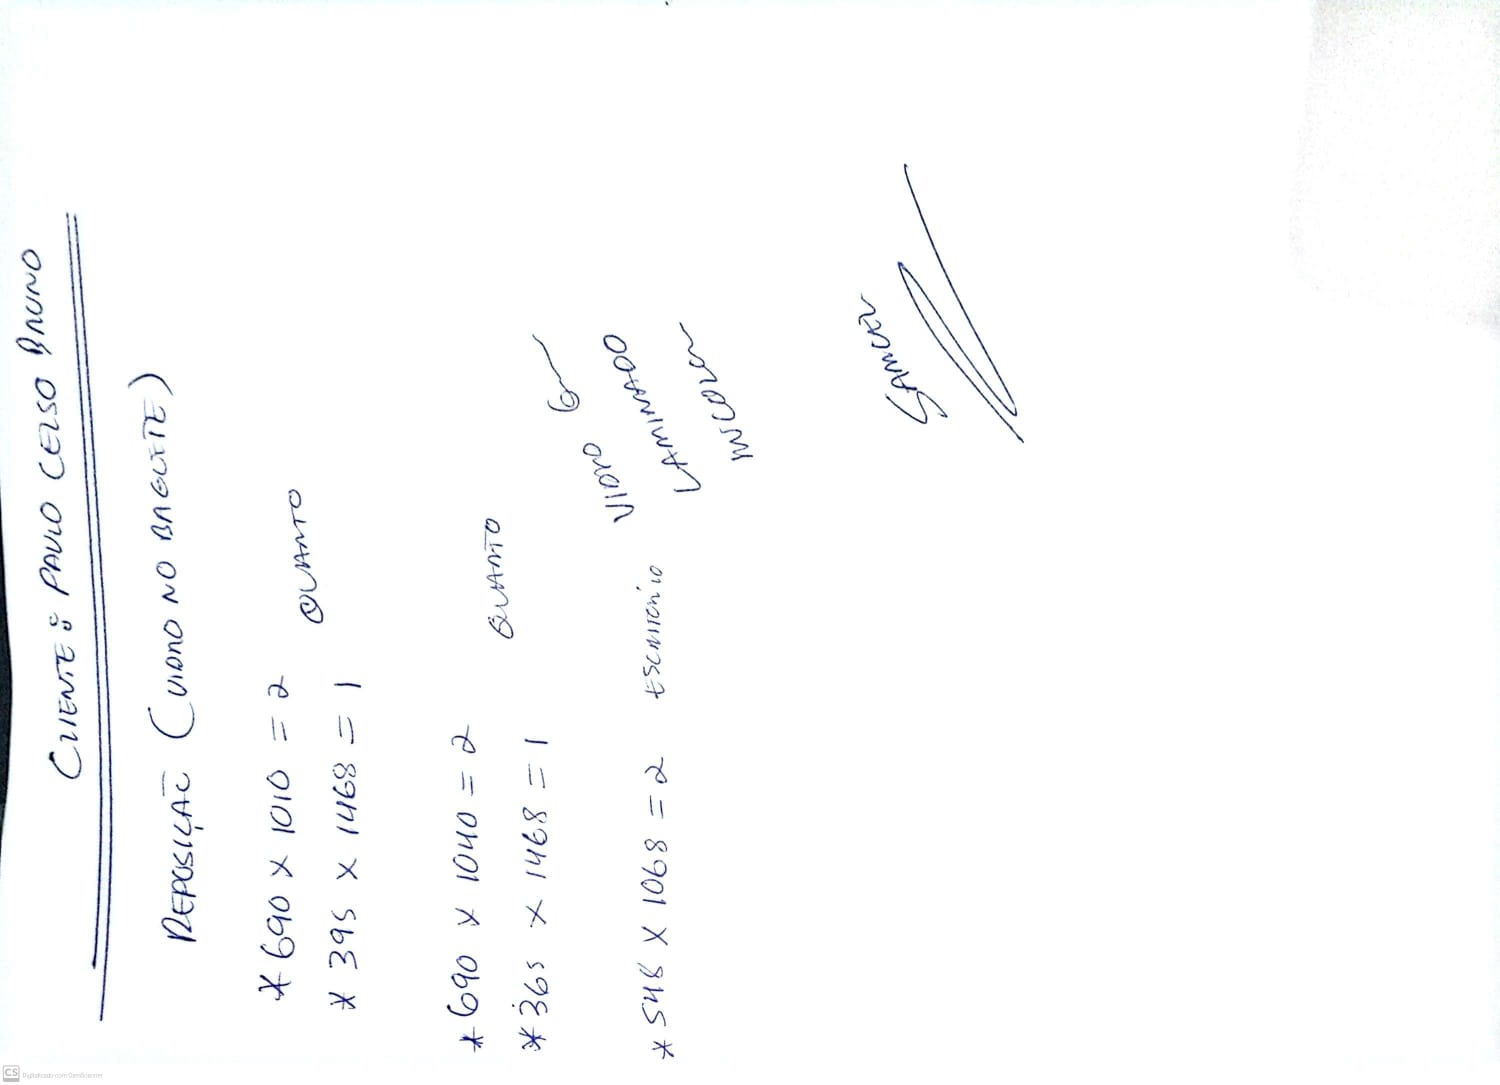 CLIENTE: PAULO CELSO BRUNO
REPOSIÇÃO (VIDRO NO BAGUETE)
* 690 X 1010 = 2
QUARTO
* 395 X 1468 = 1
* 690 X 1040 = 2
QUARTO
* 365 X 1468 = 1
* 548 X 1068 = 2 ESCRITÓRIO
VIDRO 6m
LAMINADO
INCOLOR
SAMUEL
CS Digitalizado com CamScanner